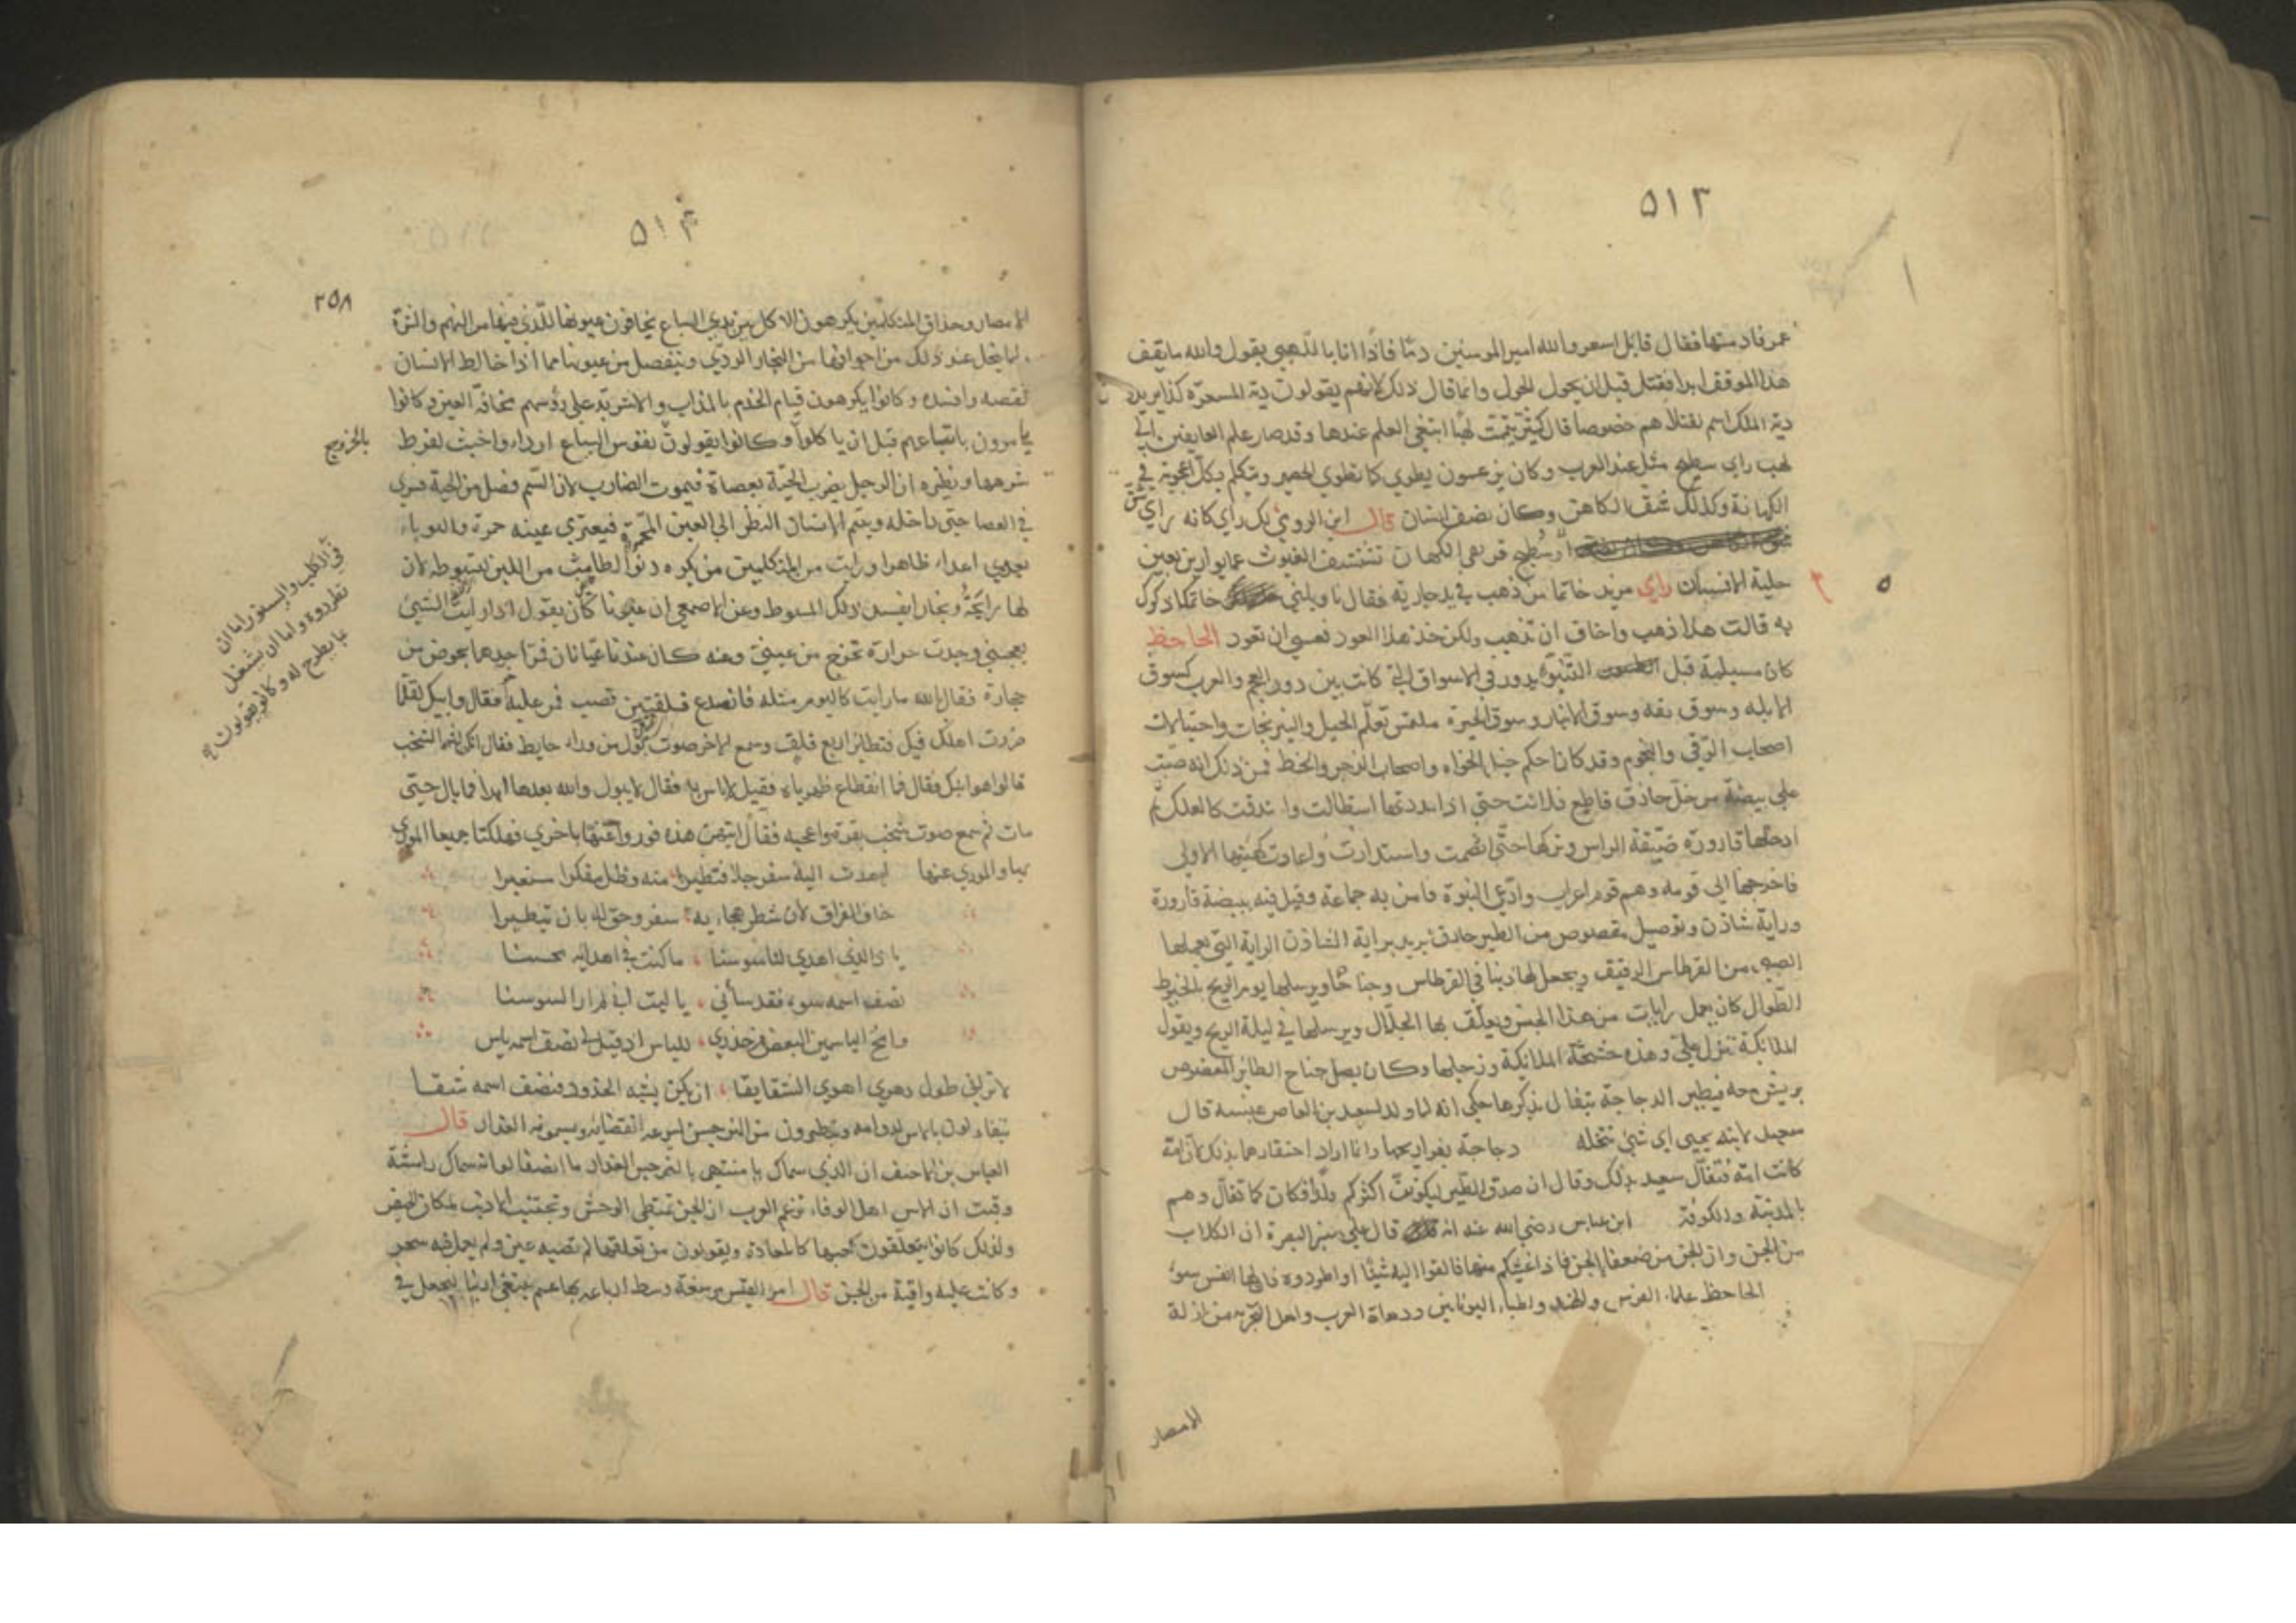 ٥١٣
عمر فادمتها فقال قايل اسعر والله امير المومنين دما فاذا انا باللهبي يقول والله ما يقف
هذا الموقف ابدا فقتل قبل ان يحول الحول وانما قال ذلك لانهم يقولون دية المسعرة كذا يريد
دية الملك اسم لقتلاهم خصوصا قال كثير تيممت لهبا ابتغى العلم عندها وقد صار علم العايفين الى
لهب راي سطيح مثل عند العرب وكان يزعمون يطوى كما تطوي الحصير ويتكلم بكل اعجوبة في
الكهانة وكذلك شق الكاهن وكان نصف انسان قال ابن الرومي لك راي كانه راي شق
او سطيح قريعي الكهان تستشف الغيوب عما يوارين بعين
حلية الانسان راي مزيد خاتما من ذهب في يد جارية فقال ناوليني خاتمك اذكرك
به قالت هذا ذهب واخاف ان تذهب ولكن خذ هذا العود فعسى ان تعود الجاحظ
كان مسيلمة قبل التنبؤ يدور في الاسواق التي كانت بين دور العجم والعرب كسوق
الابله وسوق بقه وسوق الانبار وسوق الحيرة يلتمس تعلم الحيل والنيرنجات واحتيالات
اصحاب الرقي والنجوم وقد كان احكم حيل الحواه واصحاب الزجر والخط فمن ذلك انه صب
على بيضة من خل حاذق قاطع فلانت حتى اذا مددتها استطالت واستدقت كالعلك ثم
ادخلها قارورة ضيقة الراس وتركها حتى انضمت واستدارت وعادت كهيئتها الاولى
فاخرجها الى قومه وهم قوم اعراب وادعى النبوة فامن به جماعة وقيل فيه ببيضة قارورة
وراية شاذن وتوصيل مقصوص من الطير حاذق يريد براية الشاذن الراية التي يعملها
الصبي من القرطاس الرقيق ويجعل لها ذنبا في القرطاس وجناحا ويرسلها يوم الريح بالخيوط
الطوال كان يعمل رايات من هذا الجنس ويعلق بها الجلاجل ويرسلها في ليلة الريح ويقول
الملائكة تنزل علي وهذه خشخشة الملائكة وزجلها وكان يصل جناح الطائر المقصوص
بريش معه فيطير الدجاجة يتفال بذكرها حكي انه لما ولد لسعيد بن العاص عنبسة قال
سعيد لابنه يحيى اي شئ تنحله دجاجة بفراريجها وانما اراد احتقارها بذلك لان امه
كانت امة فتفال سعيد بذلك وقال ان صدق الطير ليكونن اكثركم ولدا فكان كما تفال وهم
بالمدينة والكوفة ابن عباس رضي الله عنه انه قال على منبر البصرة ان الكلاب
من الجن وان الجن من ضعفا الجن فاذا غشيكم منها فالقوا اليه شيئا او اطردوه فان لها انفس سوء
الجاحظ علماء الفرس والهند واطباء اليونانيين ودهاة العرب واهل التجربه من نازلة
الامصار
٥١٤
٢٥٨
الامصار وحذاق المتكلمين يكرهون الاكل بين يدي السباع يخافون عيونها للذي فيها من النهم والشره
ولما يتحلل عند ذلك من اجوافها من البخار الردي وينفصل من عيونها مما اذا خالط الانسان
نقصه وافسده وكانوا يكرهون قيام الخدم بالمذاب والاشربة على رؤسهم مخافة العين وكانوا
يامرون باشباعهم قبل ان ياكلوا وكانوا يقولون نفوس السباع اردا واخبث لفرط
شرهها ونظيره ان الرجل يضرب الحية بعصاه فيموت الضارب لان السم فصل من الحية فسري
في العصا حتى داخله ويتم الانسان النظر الى العين المحمرة فيعتري عينه حمرة والثوباء
يعدي اعداء ظاهرا ورايت من المتكلمين من يكره دنو الطامث من اللبن لتسوطه لان
لها رايحة وبخارا يفسد ذلك المسوط وعن الاصمعي ان عيونا كان يقول اذا رايت الشئ
يعجبني وجدت حرارة تخرج من عيني وعنه كان عندنا عيانان فمر احدهما بحوض من
حجارة فقال بالله ما رايت كاليوم مثله فانصدع فلقتين قصب فمر عليه فقال وابيك لقلما
ضررت اهلك فيك فتطاير اربع فلق وسمع الاخر صوت بول من وراء حايط فقال انك لشر الشخب
قالوا هو ابنك فقال فا انقطاع ظهرياه فقيل لا باس به فقال لا يبول والله بعدها ابدا فما بال حتى
مات ثم سمع صوت شخب بقرة فاعجبه فقال ايتهن هذه فوروا عنها باخري فهلكتا جميعا الموري
بها والموري عنها اهدت اليه سفرجلا فتطيرا منه وظل مفكرا مستعبرا
خاف الفراق لان شطر هجاءيه سفر وحق له بان يتطيرا
يا ذا الذي اهدي لنا سوسنا ما كنت في اهدائه محسنا
نصف اسمه سوء فقد ساءني يا ليت اني لم ار السوسنا
لا تراني طول دهري اهوي الشقايقا ان يكن يشبه الخدود فنصف اسمه شقا
يتفاءلون بالاس لدوامه ويتطيرون من النرجس لسرعه انقضائه ويسمونه الغدار قال
العباس بن الاحنف ان الذي سماك يا منيتي بالنرجس الغدار ما انصفا لو انه سماك راسنة
وفيت ان الاس اهل الوفاء تزعم العرب ان الجن تمتطي الوحش وتجتنب الارانب لمكان الحيض
ولذلك كانوا يتعلقون كعبها كالمعاذة ويقولون من تعلقها لم تصبه عين ولم يعمل فيه سحر
وكانت عليه واقية من الجن قال امرؤ القيس مرسعة وسط ارباعه بها عسم يبتغي ارنبا ليجعل في
بالخروج
في الكلب والسنور اما ان
تطردوه واما ان يشغل
بما يطرح له وكانوا يقولون